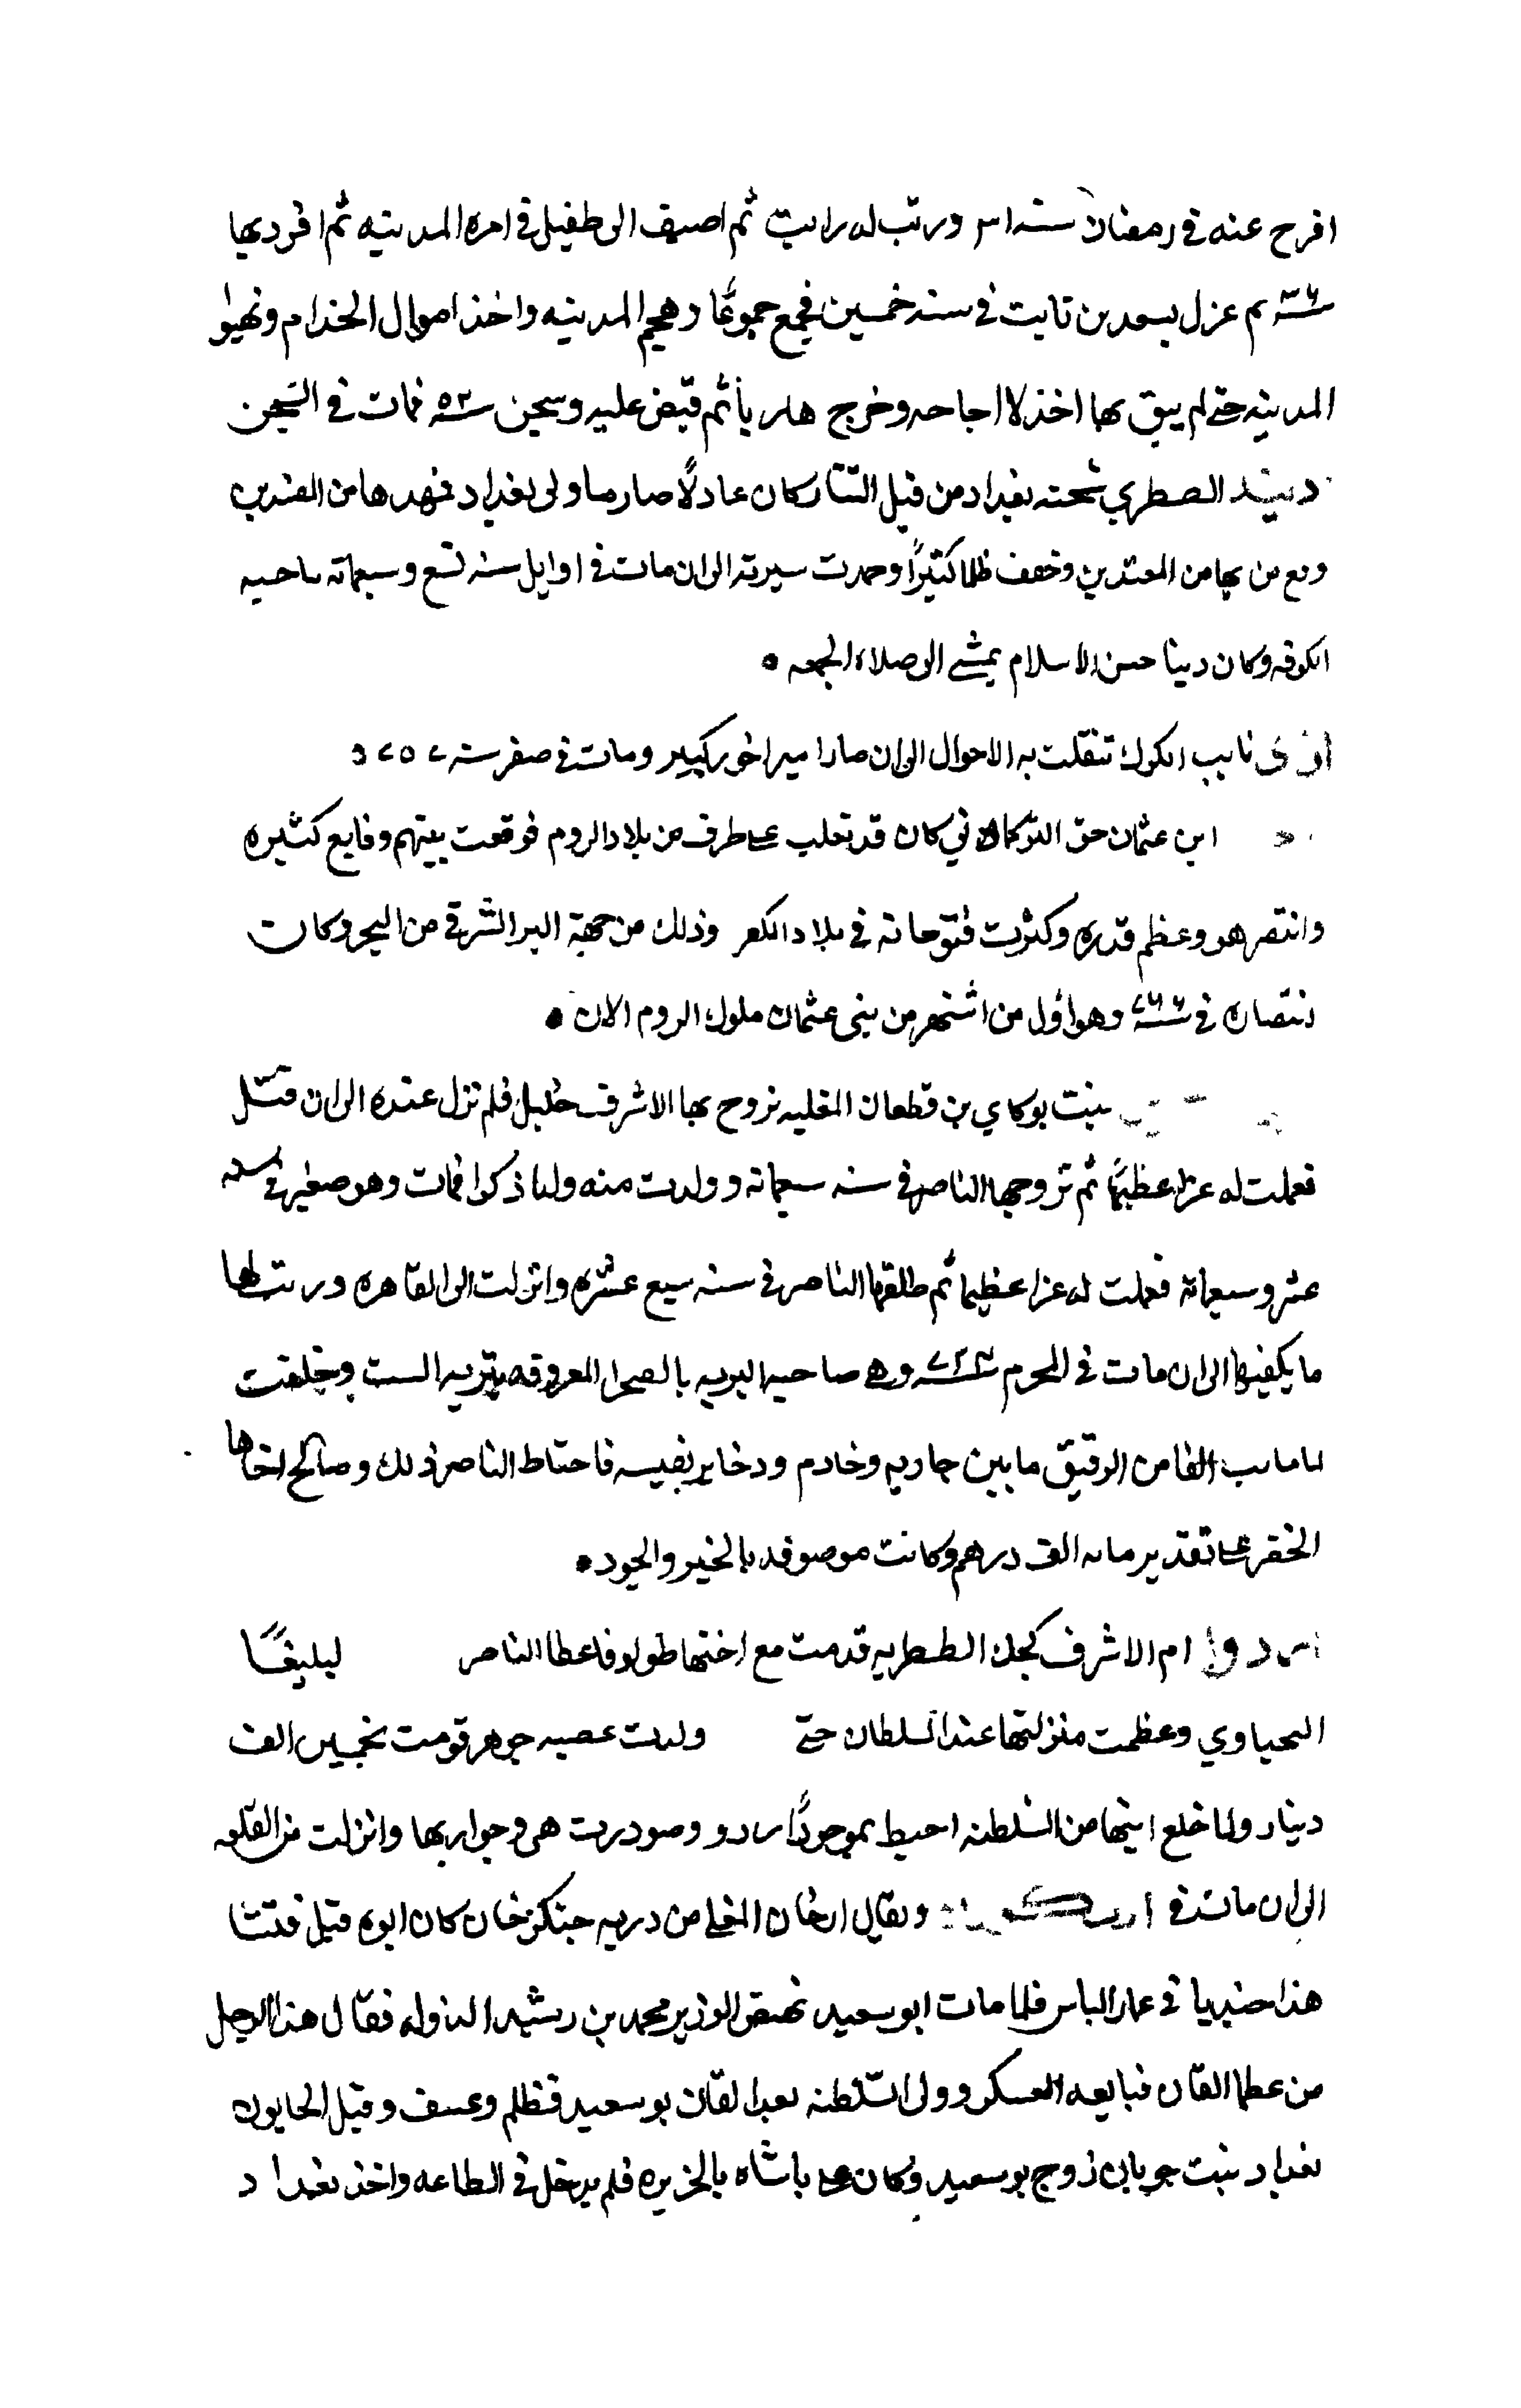 افرج عنه في رمضان سنة ورتب له راتب ثم اضيف الى طفيل في امره المدينه ثم افرد بها
سنة ٣٦ ثم عزل بسعد بن ثابت في سنه خمسين فجمع جموعًا وهجم المدينه واخذ اموال الخدام ونهبوا
المدينه حتى لم يبق بها اخذ لا اجاحه وخرج هاربا ثم قبض عليه وسجن سنه ٥٣ فمات في السجن
الططري شحنه بغداد من قبل التتار كان عادلًا صارما ولى بغداد فمهدها من المفسدين
من بها من المعتدين وخفف ظلما كثيرًا وحمدت سيرته الى ان مات في اوايل سنه تسع وسبعماته ناحيه
الكوفه وكان دينا حسن الاسلام يمشي الى صلاه الجمعه ٥
نايب الكرك تنقلت به الاحوال الى ان صار امير اخور كبير ومات في صفر سنه ٧٥٧
ابن عثمان حق التركماني كان قد تغلب على طرف من بلاد الروم فوقعت بينهم وقايع كثيره
وانتصر هو وعظم قدره وكثرت فتوحاته في بلاد الكفر وذلك من جهة البر الشرقي من البحر وكان
انتصاره في سنة وهو اول من اشتهر من بني عثمان ملوك الروم الان ٥
بنت بوكاي بن قطعان المغليه تزوج بها الاشرف خليل فلم تزل عنده الى ان قتل
فعملت له عزا عظيمًا ثم تزوجها الناصر في سنه سبعماته وولدت منه ولدا ذكرا فمات وهو صغير في سنه
عشر وسبعماته فعملت له عزا عظيما ثم طلقها الناصر في سنه سبع عشره وانزلت الى القاهره ورتب لها
ما يكفيها الى ان ماتت في المحرم سنه ٧٢٤ وهي صاحبه التربه بالصحرا المعروفه بتربه الست وخلفت
الفا من الرقيق ما بين جاريه وخادم وذخاير نفيسه فاحتاط الناصر ذلك وصالح اخاها
على تقدير مايه الف درهم وكانت موصوفه بالخير والجود ٥
اردوا ام الاشرف كجك الططريه قدمت مع اختها طولو فاعطا الناصر ليلبغا
اليحياوي وعظمت منزلتها عند السلطان حتى ولدت عصبه جوهر قومت بخمسين الف
دينار ولما خلع ابنها من السلطنه احيط بموجود اردو وصودرت هي وجواريها وانزلت من القلعه
الى ان ماتت في ويقال ارخان المغلي من ذريه جنكزخان كان ابوه قتل فنشا
هذا جنديا في عمار الناس فلما مات ابو سعيد نهض الوزير محمد بن رشيد الدوله فقال هذا الرجل
من عظما القان فبايعه العسكر وولى السلطنه بعد القان بوسعيد فظلم وعسف وقتل الخاتون
بغداد بنت جوبان زوج بوسعيد وكان على باشاه بالجزيره فلم يدخل في الطاعه واخذ بغداد